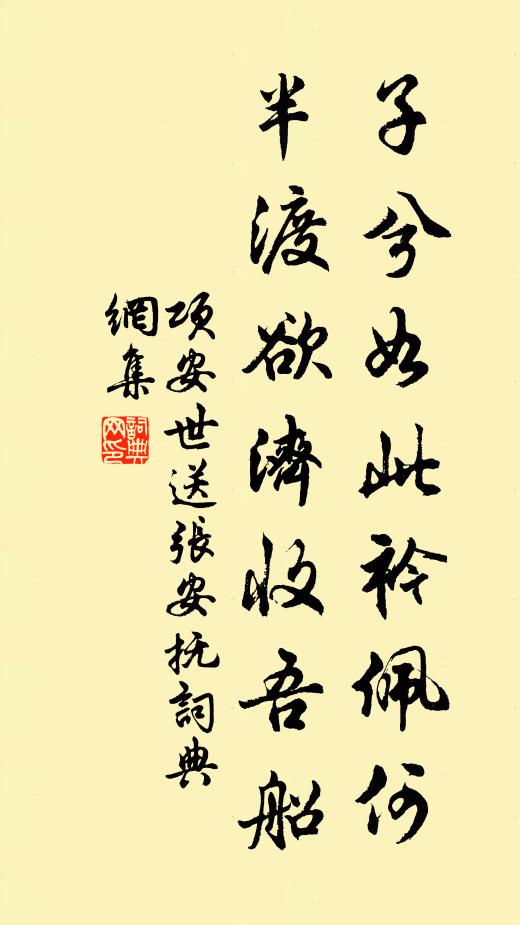 子兮如此衿佩何
半渡欲濟收吾船
項安世送張安撫詞典
網集
詞典網印